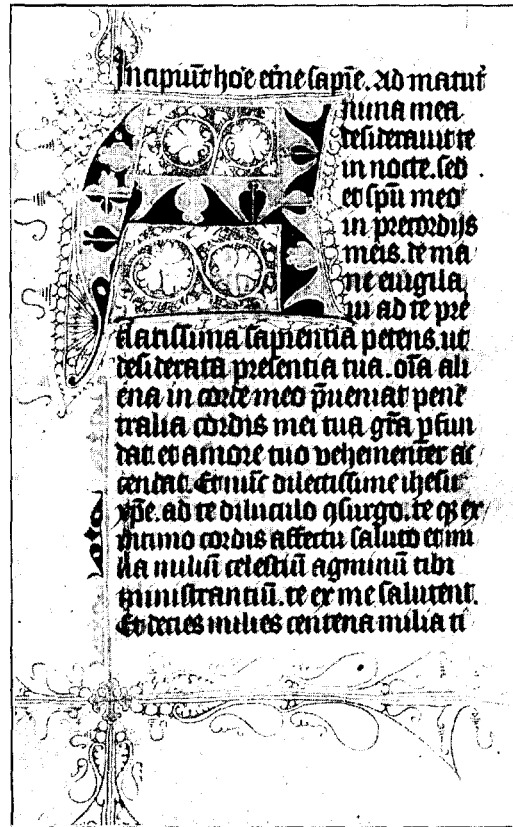 Incipiūt hoֿe etֿne sapiֿe. Ad matutֿ
A nima mea
desiderauit te
in nocte. sed
et spū meo
in precordijs
meis. de ma
ne euigila
ui ad te pre
clarissima sapientia petens. ut
desiderata presentia tua. oīa ali
ena in corde meo p̄ueniat pene
tralia cordis mei tua grā pfun
dat. et amore tuo vehementer ac
cendat. Et nūc dilectissime ihesu
xp̄e. ad te diluculo ꝯsurgo. te qꝫ ex
intimo cordis affectu saluto et mi
lia miliū celestiū agminū tibi
ministrantiū. te ex me salutent.
Et decies milies centena milia ti